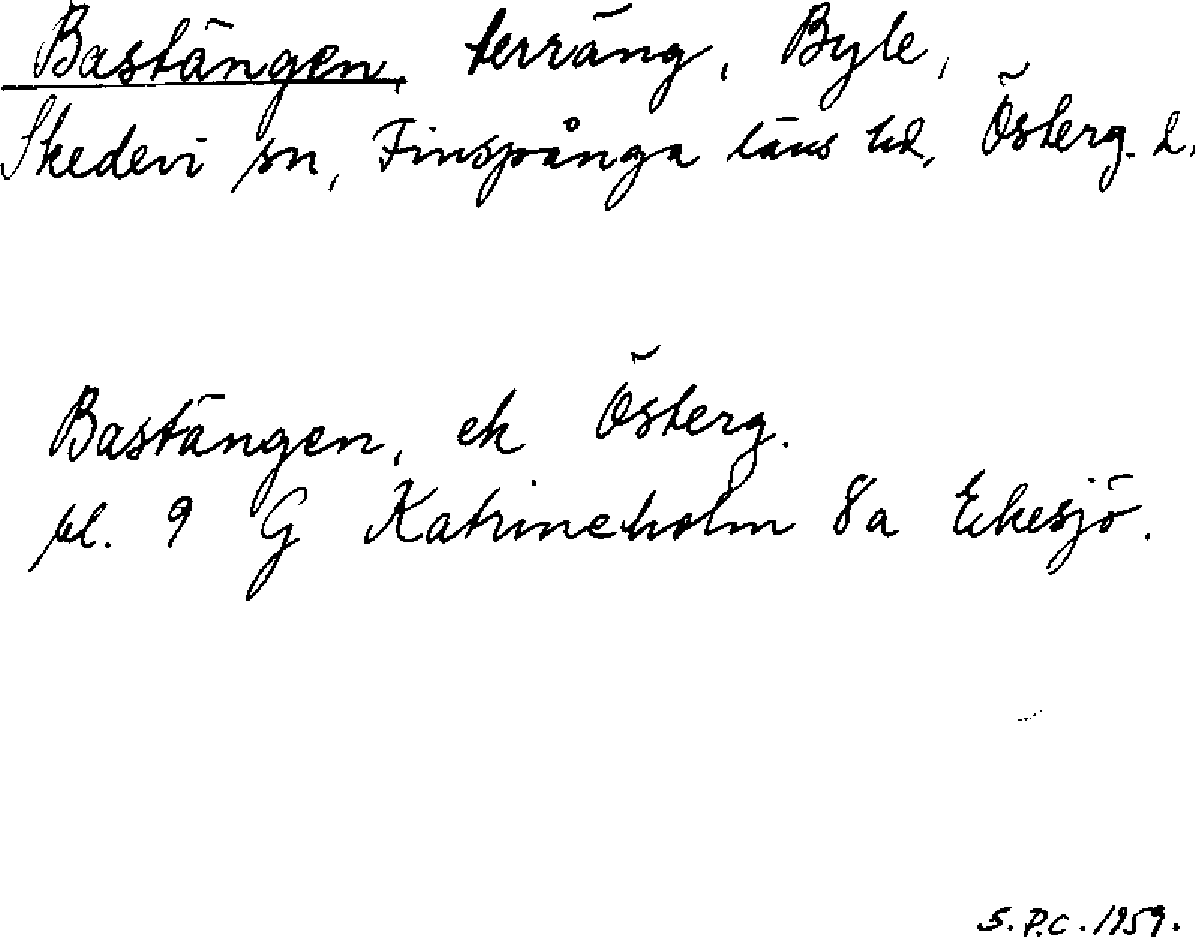 Bastängen, terräng, Byle,
Skedevi sn, Finspånga läns hd, Österg. l.
Bastängen, ek Österg.
bl. 9 G Katrineholm 8a Ekesjö.
S.P.C. 1959.